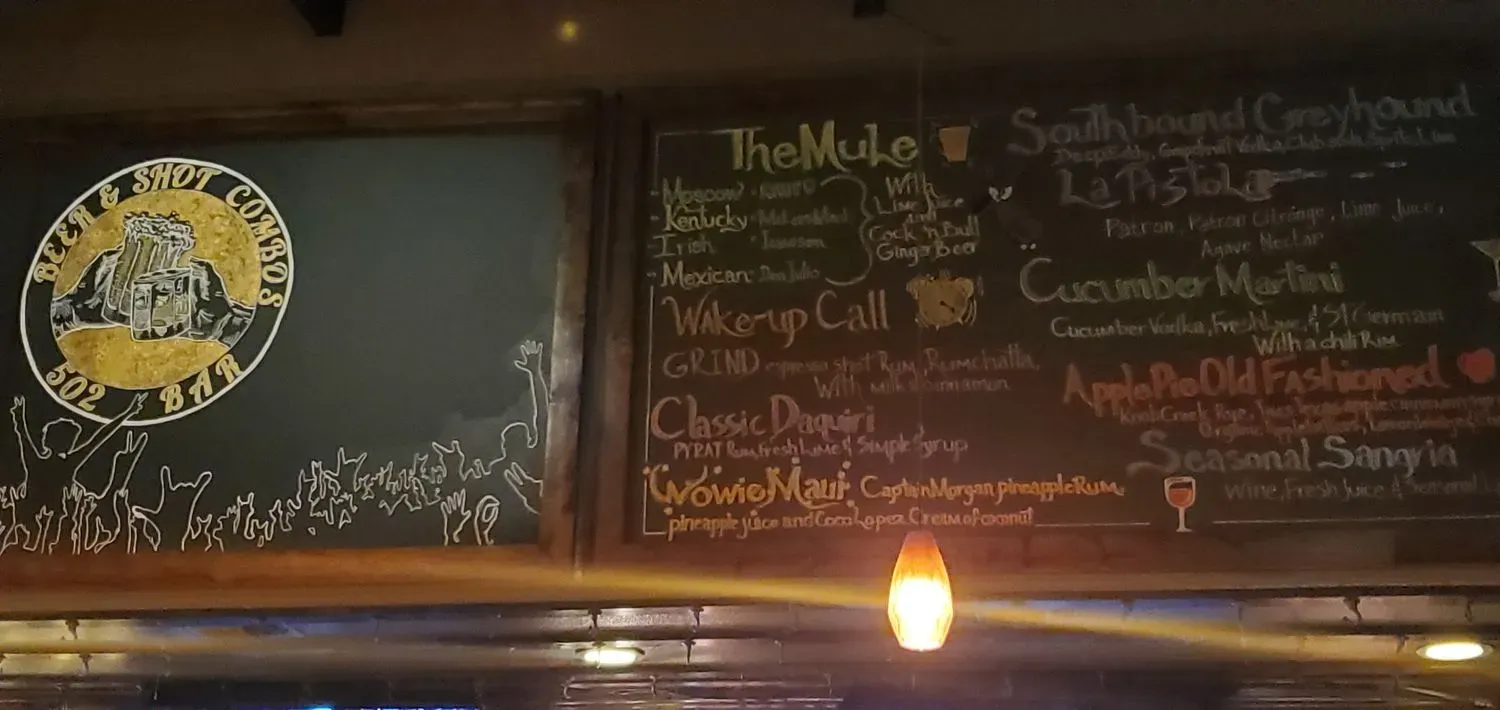 BEER & SHOT COMBOS
502 BAR
The Mule
Moscow
Kentucky
Irish Jameson
Mexican Don Julio
With
Lime Juice
and
Cock 'n Bull
Ginger Beer
Wake-up Call
GRIND espresso shot Rum, Rumchatta,
With milk & cinnamon
Classic Daquiri
PYRAT Rum, Fresh Lime & Simple Syrup
Wowie Maui Captain Morgan pineapple Rum
pineapple juice and Coco Lopez Cream of coconut
Southbound Greyhound
Deep Eddy, Grapefruit Vodka, Club soda
La Pistola
Patron, Patron Citronge, Lime Juice,
Agave Nectar
Cucumber Martini
Cucumber Vodka, Fresh Lime, & St Germain
With a chili Rim
Apple Pie Old Fashioned
Knob Creek Rye,
Seasonal Sangria
Wine, Fresh Juice & Seasonal